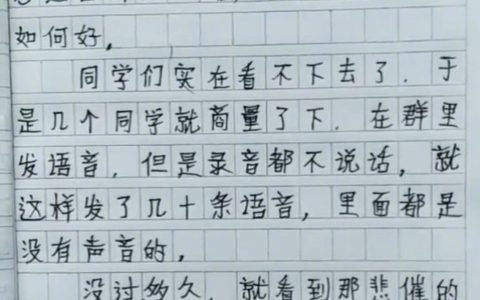 如何好。
同学们实在看不下去了．于
是几个同学就商量了下．在群里
发语音，但是录音都不说话，就
这样发了几十条语音，里面都是
没有声音的，
没过多久．就看到那悲催的